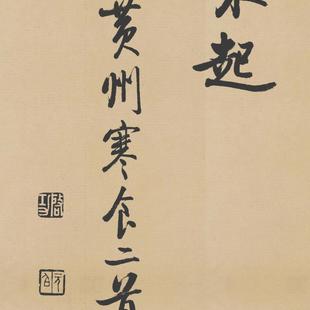 起
黄州寒食二首